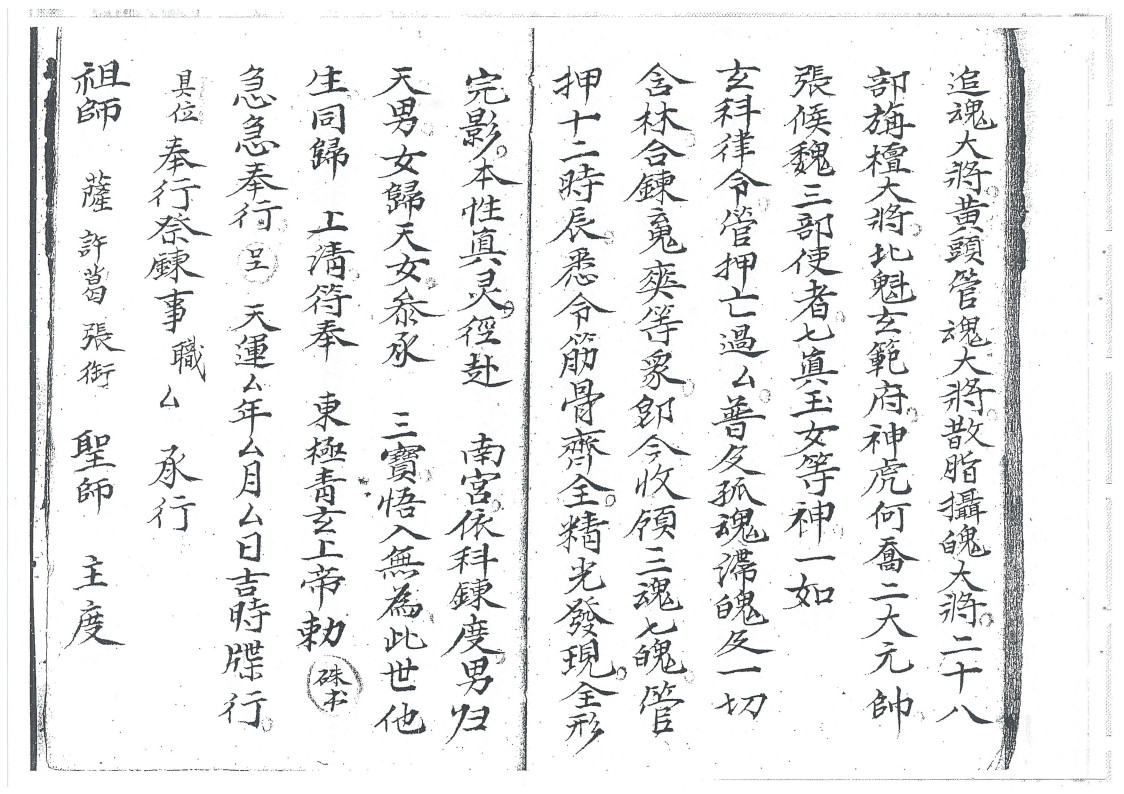 追魂大將。黃頭管魂大將。散脂攝魄大將。二十八
部旃檀大將。北魁玄範府。神虎何喬二大元帥。
張候魏三部使者。七真玉女等神。一如
玄科律令。管押亡過厶。普及孤魂滯魄。及一切
含林合鍊䰟爽等眾。卽令收領三魂七魄。管
押十二時辰。悉令筋骨齊全。精光發現。全形
完影。本性真灵。徑赴 南宮。依科鍊度。男归
天男女歸天女。叅承 三寶。悟入無為。此世他
生同歸 上清。符奉 東極青玄上帝勅 硃书
急急奉行。 天運厶年厶月厶日吉時牒行。
具位 奉行祭鍊事 職厶 承行
祖師 薩 許 葛 張 銜 聖師 主度